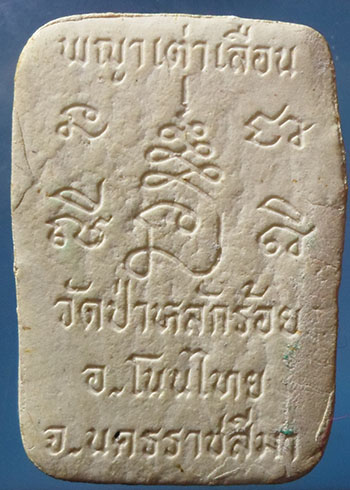 พญาเต่าเลือน
วัดป่าหลักร้อย
อ.โนนไทย
จ.นครราชสีมา